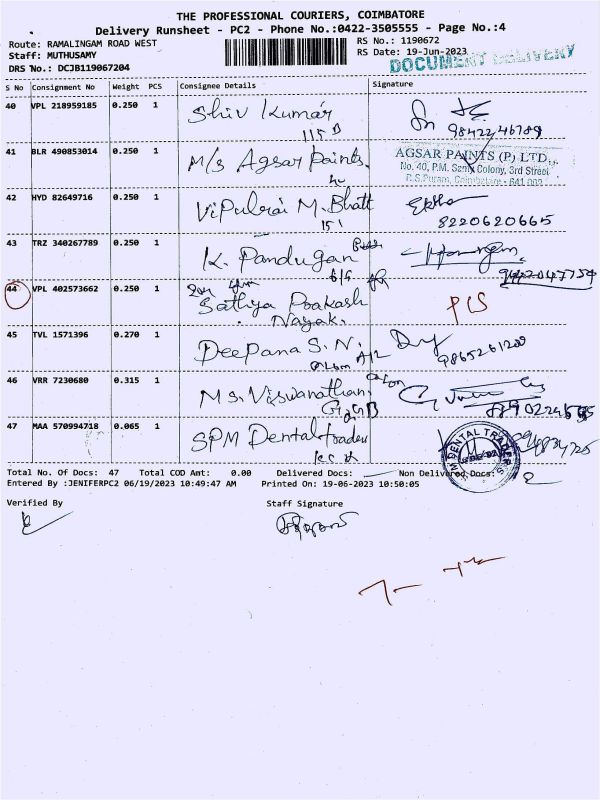 THE PROFESSIONAL COURIERS, COIMBATORE
Delivery Runsheet - PC2 - Phone No.:0422-3505555 - Page No.:4
Route: RAMALINGAM ROAD WEST
Staff: MUTHUSAMY
DRS No.: DCJB119067204
RS No.: 1190672
RS Date: 19-Jun-2023
DOCUMENT DELIVERY
S No Consignment No Weight PCS Consignee Details Signature
40 VPL 218959185 0.250 1 Shiv Kumar
115
9842246789
41 BLR 490853014 0.250 1 M/s Agsar Paints.
AGSAR PAINTS (P) LTD.,
No. 40, P.M. Samy Colony, 3rd Street
R.S.Puram, Coimbatore - 641 002
42 HYD 82649716 0.250 1 Vipulrai M. Bhatt
151
8220620665
43 TRZ 340267789 0.250 1 K. Pandugan
44 VPL 402573662 0.250 1 Sathya Prakash
Nayak.
PCS
45 TVL 1571396 0.270 1 Deepana S. N.
9865261200
46 VRR 7230680 0.315 1 Ms. Viswanathan
47 MAA 570994718 0.065 1 SPM Dental traders
DENTAL TRADERS
Total No. Of Docs: 47 Total COD Amt: 0.00 Delivered Docs: Non Delivered Docs:
Entered By :JENIFERPC2 06/19/2023 10:49:47 AM Printed On: 19-06-2023 10:50:05
Verified By Staff Signature